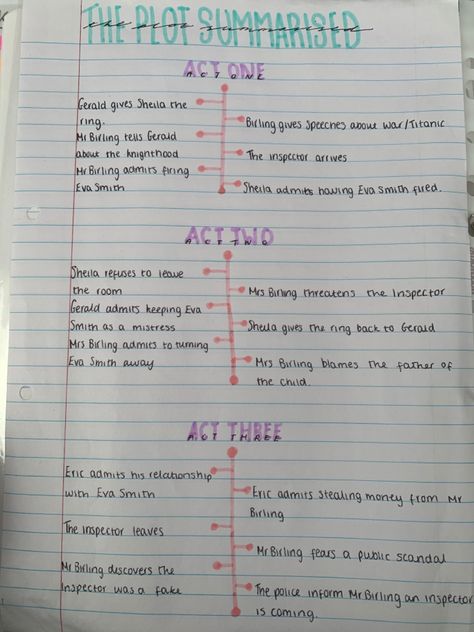 THE PLOT SUMMARISED
the plot summarised
ACT ONE
ACT ONE
Gerald gives Sheila the
ring.
Birling gives speeches about war/Titanic
Mr Birling tells Gerald
about the knighthood
The inspector arrives
Mr Birling admits firing
Eva Smith
Sheila admits having Eva Smith fired.
ACT TWO
ACT TWO
Sheila refuses to leave
the room
Mrs Birling threatens the Inspector
Gerald admits keeping Eva
Smith as a mistress
Sheila gives the ring back to Gerald
Mrs Birling admits to turning
Eva Smith away
Mrs Birling blames the father of
the child.
ACT THREE
ACT THREE
Eric admits his relationship
with Eva Smith
Eric admits stealing money from Mr
Birling
The inspector leaves
Mr Birling fears a public scandal
Mr Birling discovers the
Inspector was a fake
The police inform Mr Birling an inspector
is coming.